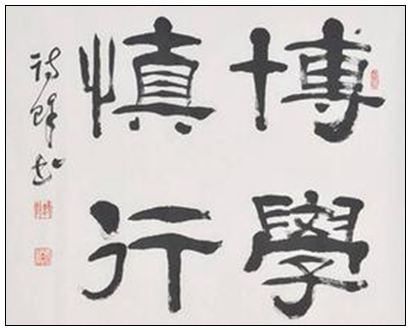 博學
慎行